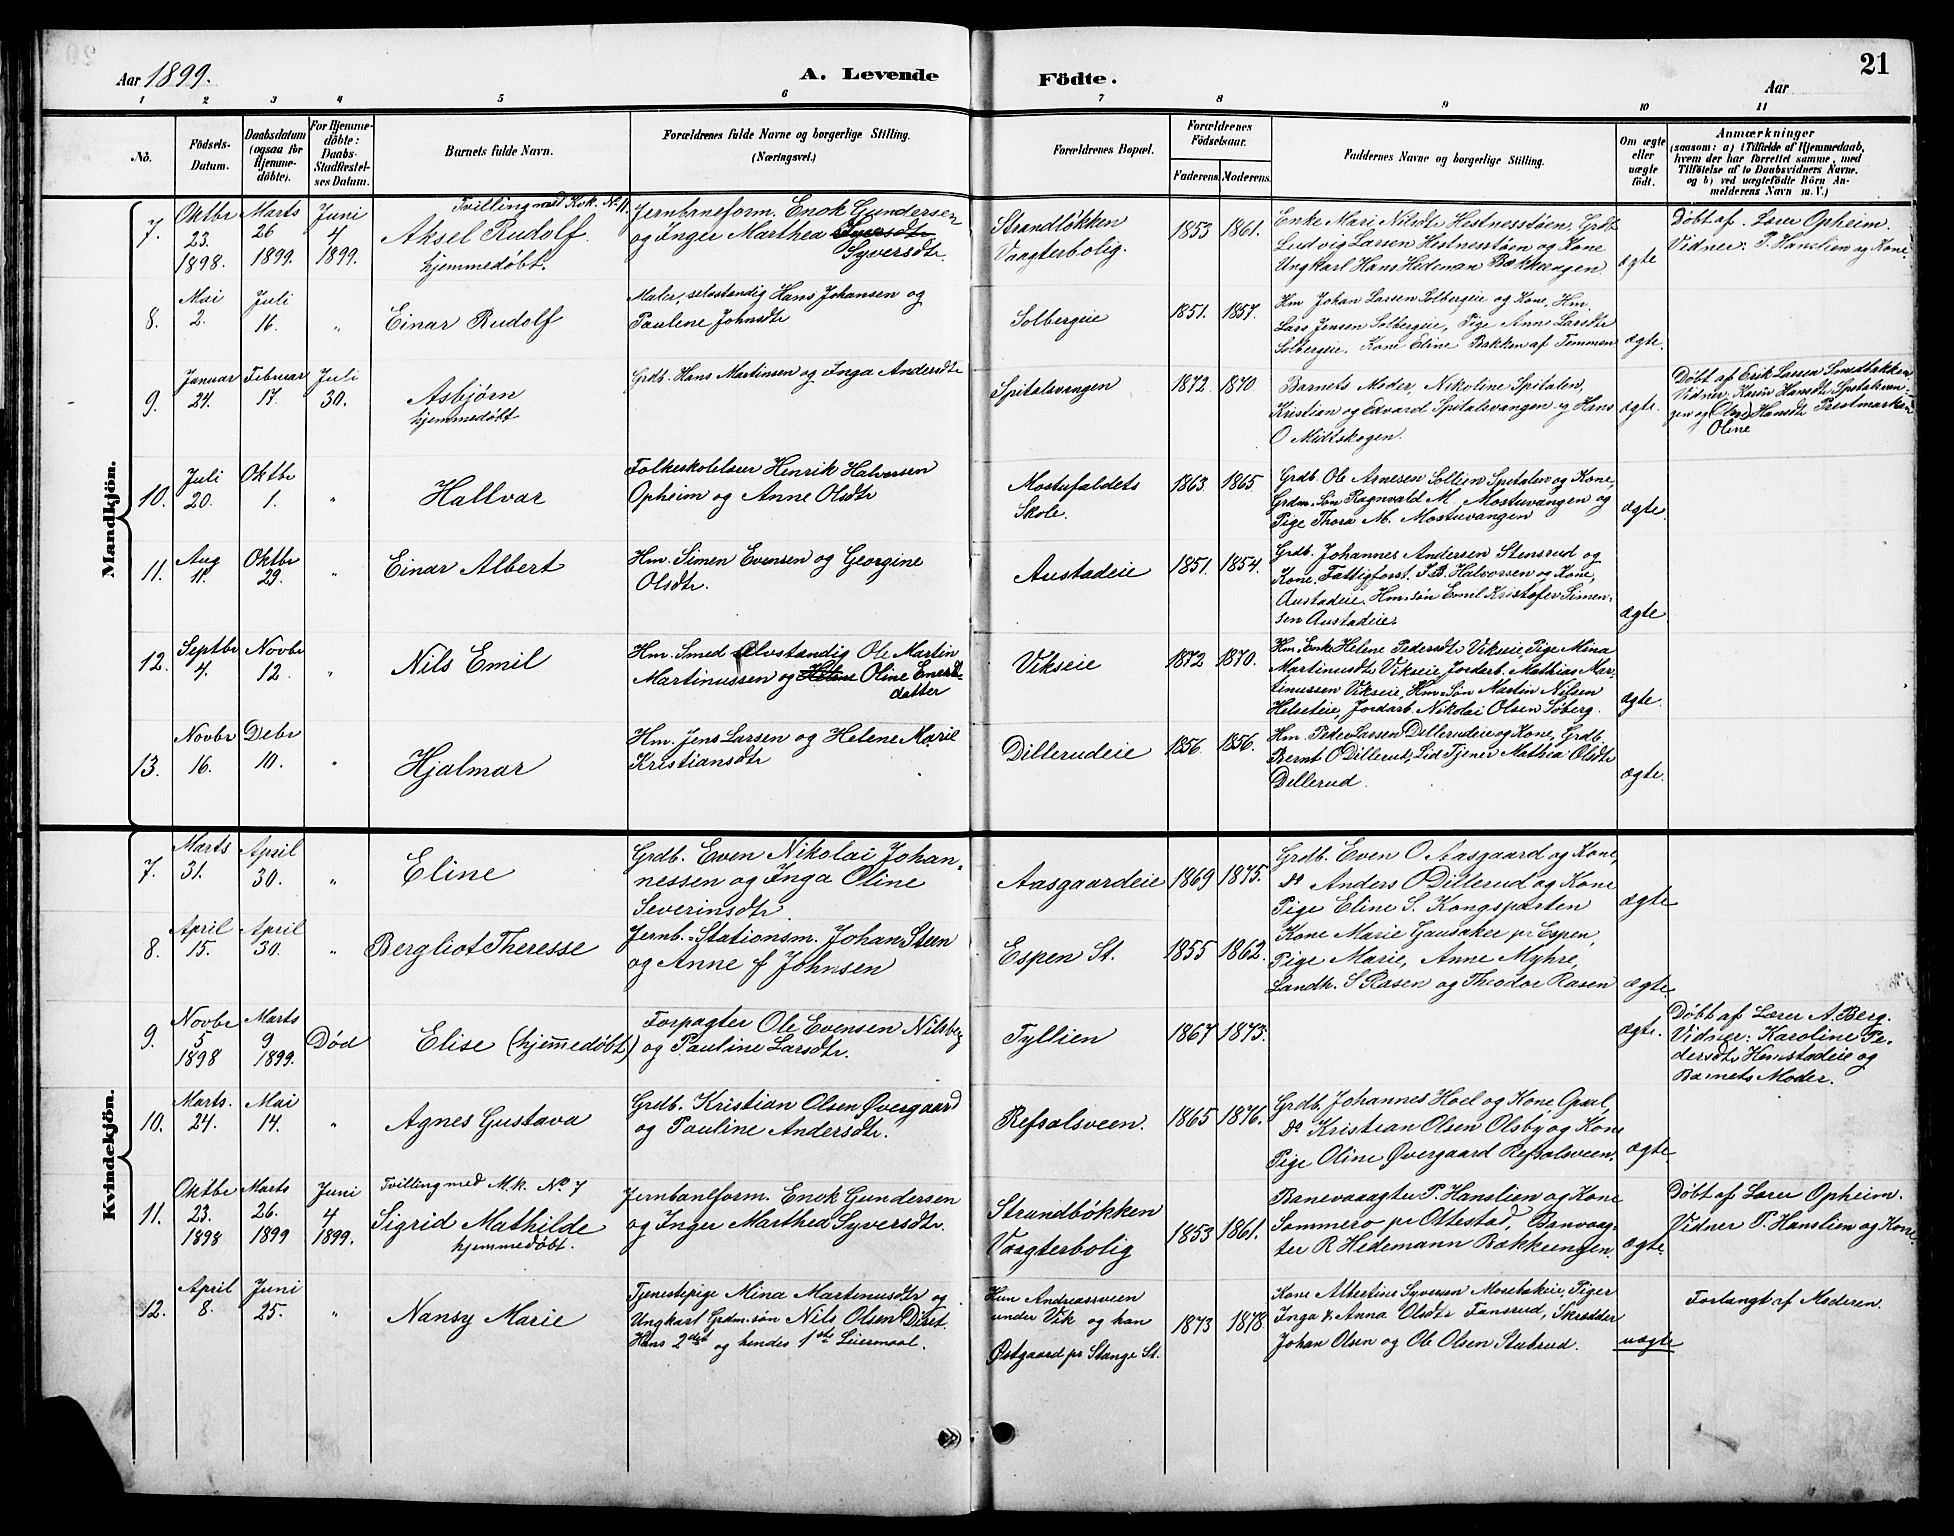 Aar 1899.
A. Levende Födte.
Aar
21
1 2 3 4 5 6 7 8 9 10 11
No.
Födsels-
Datum.
Daabsdatum
(ogsaa for
Hjemme-
döbte).
For Hjemme-
döbte:
Daabs-
Stadfæstel-
ses Datum.
Barnets fulde Navn.
Forældrenes fulde Navne og borgerlige Stilling.
(Næringsvei.)
Forældrenes Bopæl.
Forældrenes
Födselsaar.
Faderens. Moderens.
Faddernes Navne og borgerlige Stilling.
Om ægte
eller
uægte
födt.
Anmærkninger
(saasom: a) i Tilfælde af Hjemmedaab,
hvem der har forrettet samme, med
Tilföielse af to Daabsvidners Navne.
og b) ved uægtefödte Börn An-
melderens Navn m. V.)
Mandkjön.
7.
Oktbr
23.
1898.
Marts
26
1899.
Juni
4
1899.
Tvilling med Kvk. No 11.
Aksel Rudolf
hjemmedøbt.
Jernbaneform. Enok Gundersen
og Inger Marthea
Syversdtr.
Strandbøkken
Vaagterbolig.
1853 1861.
Enke Mari Nilsdtr Hestnesstøen, Grdb.
Ludvig Larsen Hestnesstøen og Kone
Ungkarl Hans Hedeman Bækkevangen
ægte
Døbt af Lærer Opheim.
Vidner: P. Hanslien og Kone.
8.
Mai
2.
Juli
16.
"
Einar Rudolf
Maler, selvstændig Hans Johansen og
Pauline Johnsdtr
Solbergeie
1851. 1857.
Hm. Johan Larsen Solbergeie og Kone, Hm.
Lars Jensen Solbergeie, Pige Anne Larsdtr
Solbergeie, Kone Eline Bakken af Tommen
ægte.
9.
Januar
24.
Februar
17.
Juli
30.
Asbjørn
hjemmedøbt
Grdb. Hans Martinsen og Inga Andersdtr
Spitalsvangen
1872. 1870
Barnets Moder, Nikoline Spitalen,
Kristian og Edvard Spitalsvangen og Hans
O Midtskogen.
ægte.
Døbt af Erik Larsen Smedbakken
Vidner: Karen Hansdtr Spitalsvan-
gen og Hansdtr Prestmarken
Oline
10.
Juli
20.
Oktbr
1.
"
Hallvar
Folkeskolelærer Henrik Halvorsen
Opheim og Anne Olsdtr
Mostufaldets
Skole.
1863. 1865.
Grdb. Ole Arnesen Sollien Spitalen og Kone,
Grdm.søn Ragnvald M. Mostuvangen og
Pige Thora M. Mostuvangen
ægte.
11.
Aug
11.
Oktbr
29.
"
Einar Albert
Hm. Simen Evensen og Georgine
Olsdtr.
Austadeie
1851. 1854.
Grdb. Johannes Andersen Stensrud og
Kone, Fattigforst. I. B. Halvorsen og Kone,
Austadeie. Hm. søn Emil Kristofer Simen-
sen Austadeie.
ægte
12.
Septbr
4.
Novbr
12.
"
Nils Emil
Hm. Smed selvstændig Ole Martin
Martinussen og Helene Oline Eners-
datter
Vikseie
1872 1870.
Hm. Enke Helene Pedersdtr Vikseie, Pige Mina
Martinusdtr Vikseie, Jordarb. Mathias Mar-
tinussen Vikseie, Hm.søn Martin Nilsen
Helseteie, Jordarb. Nikolai Olsen Søberg.
ægte.
13.
Novbr
16.
Debr
10.
"
Hjalmar
Hm. Jens Larsen og Helene Marie
Kristiansdtr
Dillerudeie
1856. 1856.
Hm. Peder Larsen Dillerudeie og Kone, Grdb.
Bernt O Dillerud, Lid Tjener Mathia Olsdtr
Dillerud.
ægte.
Kvindekjön.
7.
Marts
31.
April
30.
"
Eline
Grdb. Even Nikolai Johan-
nessen og Inga Oline
Severinsdtr.
Aasgaardeie
1869 1875.
Grdb. Even O Aasgaard og Kone,
Do Anders O Dillerud og Kone
Pige Eline S. Kongsparten
ægte
8.
April
15.
April
30.
"
Bergliot Theresse
Jernb.-Stationsm. Johan Steen
og Anne f Johnsen
Espen St.
1855 1862.
Kone Marie Gausaker pr Espen,
Pige Marie, Anne Myhre,
Landh. S Rasen og Theodor Rasen
ægte.
9.
Novbr
5
1898
Marts
9
1899.
Død
Elise (hjemmedøbt)
Forpagter Ole Evensen Nilsby
og Pauline Larsdtr.
Tyllien
1867 1873.
ægte.
Døbt af Lærer A. Berg.
Vidner: Karoline Pe-
dersdtr Hemstadeie og
Barnets Moder.
10.
Marts.
24.
Mai
14.
"
Agnes Gustava
Grdb. Kristian Olsen Øvergaard
og Pauline Andersdtr.
Refsalsveen.
1865 1876.
Grdb. Johannes Hoel og Kone Opsal,
Do Kristian Olsen Olsby og Kone
Pige Oline Øvergaard Refsalsveen.
ægte.
11.
Oktbr
23.
1898
Marts
26.
1899
Juni
4
1899.
Tvilling med M.k. No 7
Sigrid Mathilde
hjemmedøbt.
Jernbaneform. Enok Gundersen
og Inger Marthea Syversdtr.
Strandbøkken
Vaagterbolig
1853 1861.
Banevaagter P. Hanslien og Kone
Sommero pr Ottestad, Banvaag-
ter R Hedemann Bækkevangen.
ægte.
Døbt af Lærer Opheim.
Vidner P. Hanslien og Kone.
12.
April
8.
Juni
25.
"
Nansy Marie
Tjenestepige Mina Martinusdtr og
Ungkarl Grdm.søn Nils Olsen Diset.
Hans 2det og hendes 1ste Leiermaal.
Hun Andreassveen
under Vik og han
Østgaard pr Stange St.
1873 1878
Kone Albertine Syversen Mosebakeie, Piger
Inga & Anna Olsdtr Fansrud, Skrædder
Johan Olsen og Ole Olsen Stubrud.
uægte
Forlangt af Moderen.